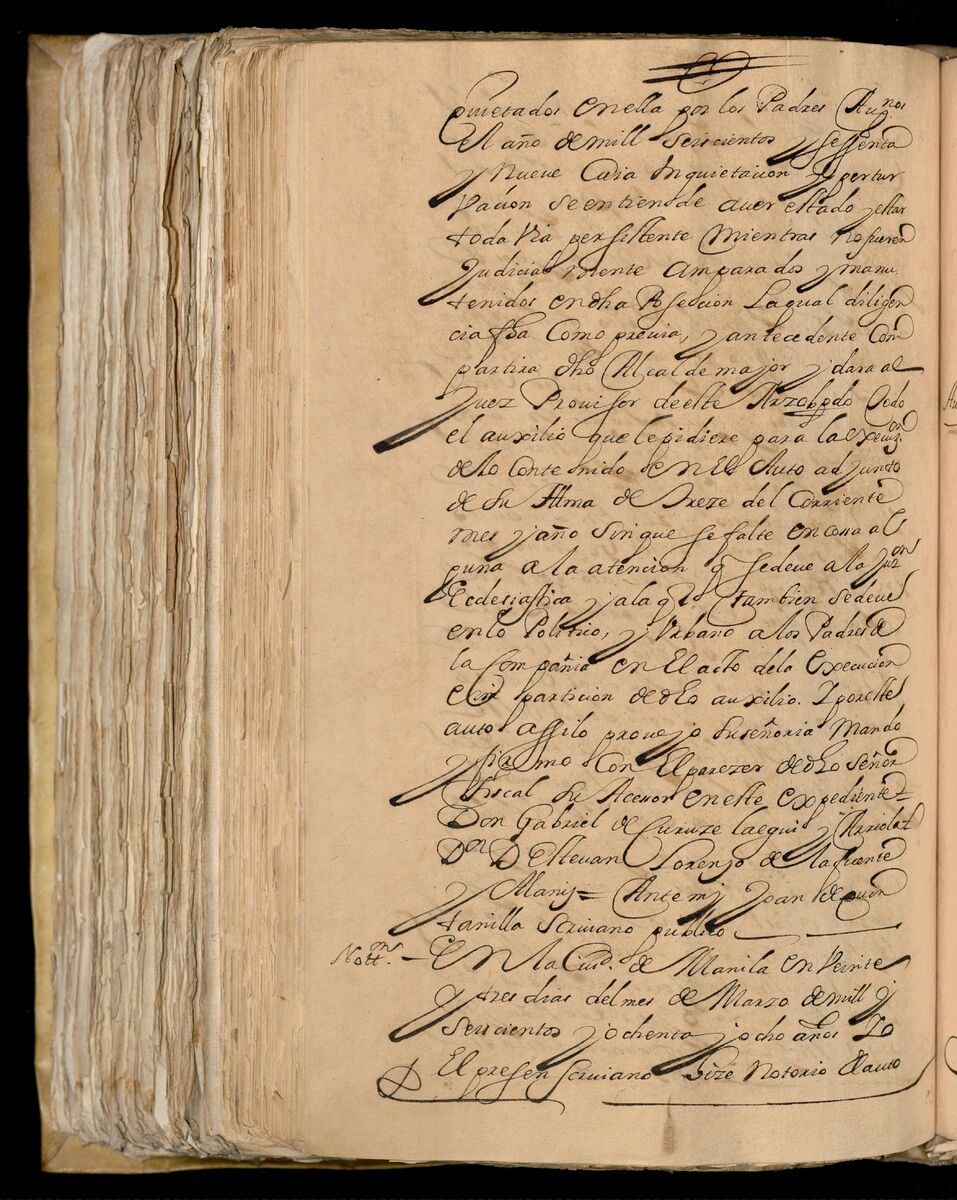 quietados en ella por los Padres Aug.nos
El año de mill seiscientos y sessenta
y nueve Cuia Inquietacion y pertur
vacion se entiende auer estado y estar
toda Via persistente mientras no fueren
Judicial mente amparados y manu
tenidos en dha Posecion La qual diligen
cia fha Como preuia, y antecedente Com
partira dho Alcalde major y dara al
Juez Prouisor de este Arzobpdo todo
el auxilio que le pidiere para la execuz.on
de lo Contenido en El Auto adjunto
de su Illma de Treze del Corriente
mes y año sin que se falte en cosa al
guna a la atencion q se deue a la Juz.on
Ecclesiastica y a la q tambien se deue
en lo Politico, y Vrbano a los Padres de
la Compañia en El acto de la Execucion
e im particion de dho auxilio. I por este
auto assi lo proueyo su señoria Mando
y firmo Con El parezer de dho señor
fiscal su Acesor en este expediente =
Don Gabriel de Curuzelaegui y Arriola =
Dn D Esteuan Lorenzo de la fuente
y Alaniz = Ante mi Joan de quin
tanilla scriuano publico
Nott.on En la Ciud. de Manila en Veinte
y tres dias del mes de Marzo de mill y
seiscientos y ochenta y ocho años Io
El presen scriuano hize Notorio El auto